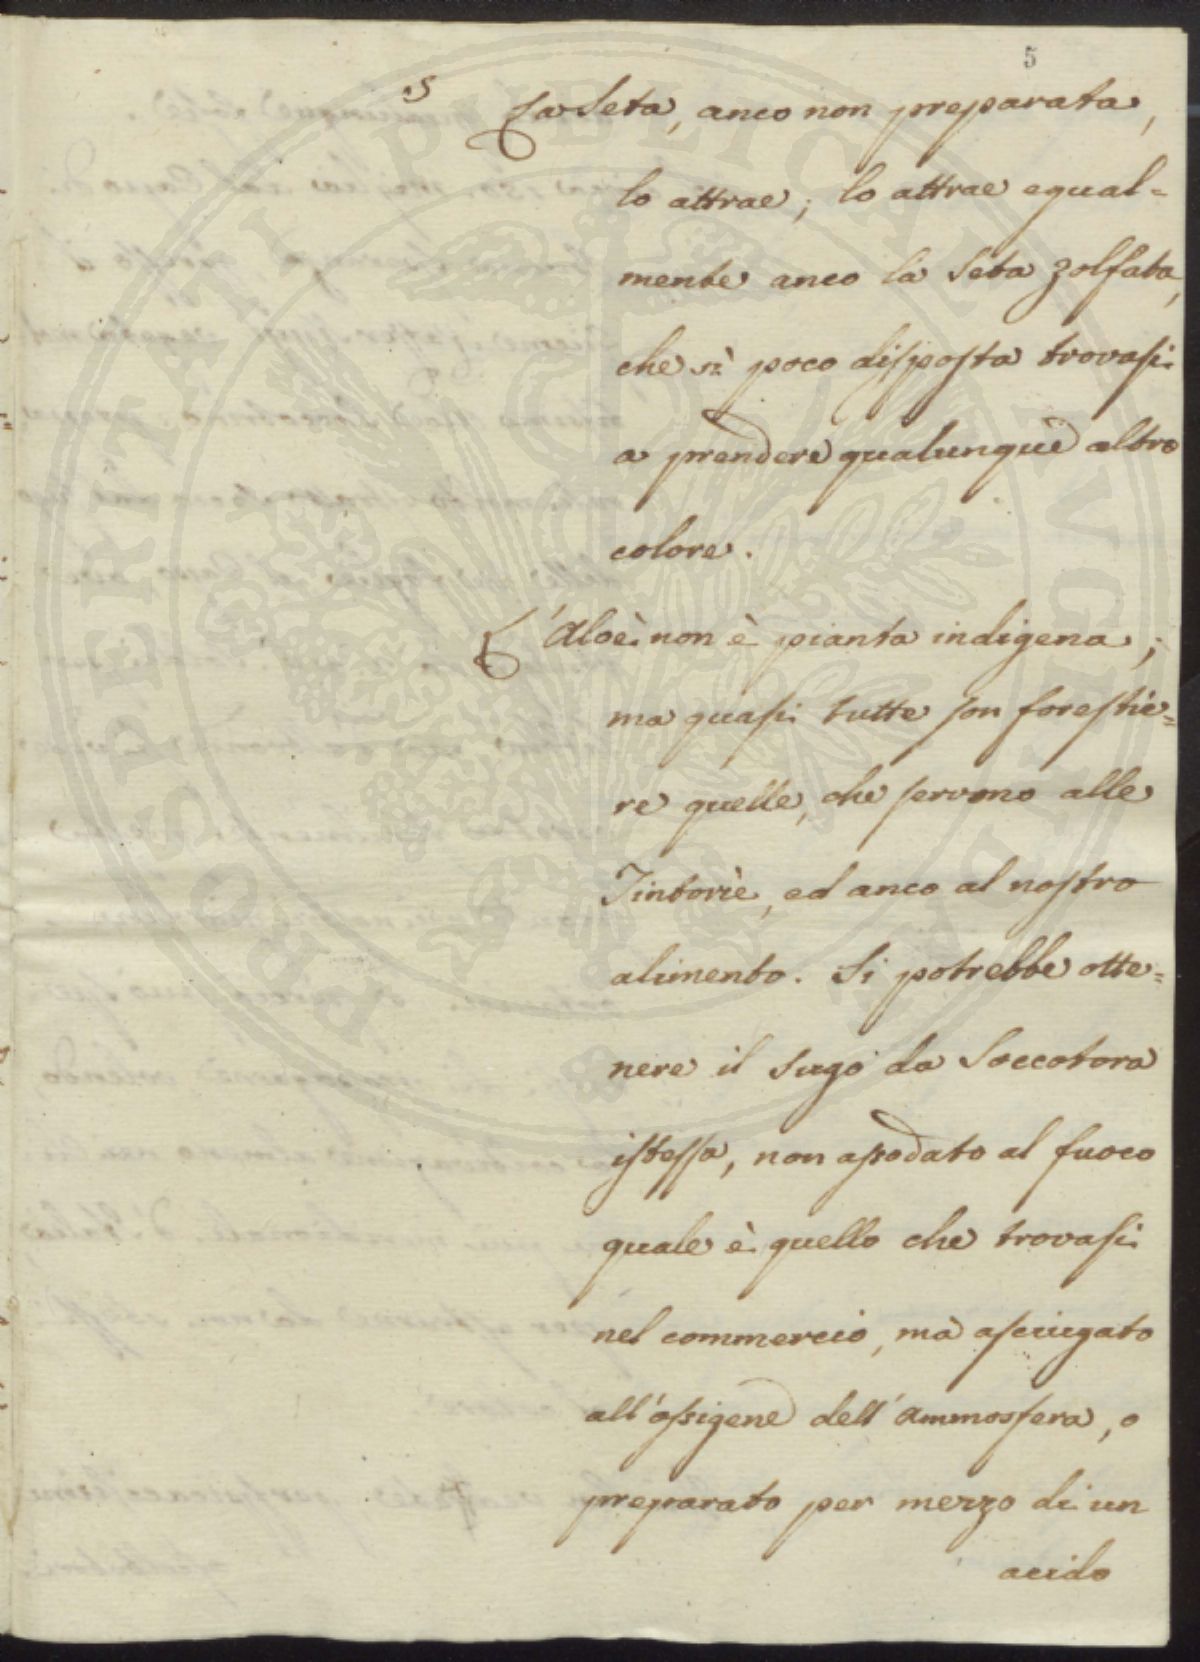 5
5
La Seta, anco non preparata,
lo attrae; lo attrae equal=
mente anco la Seta zolfata,
che sì poco disposta trovasi
a prendere qualunque altro
colore.
L'Aloè non è pianta indigena;
ma quasi tutte son forestie=
re quelle, che servono alle
Tintorìe, ed anco al nostro
alimento. Si potrebbe otte=
nere il sugo da Soccotora
istessa, non assodato al fuoco
quale è quello che trovasi
nel commercio, ma asciugato
all'ossigene dell'Ammosfera, o
preparato per mezzo di un
acido
PROSPERITATI PUBLICAE AUGENDAE